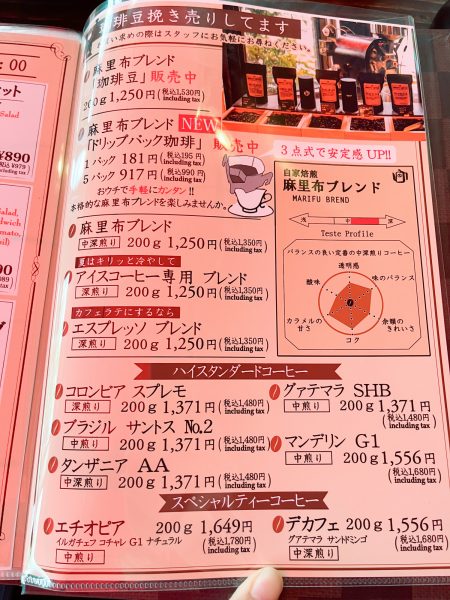 珈琲豆挽き売りしてます
い求めの際はスタッフにお気軽にお尋ねください。
麻里布ブレンド
「珈琲豆」販売中
200g 1,250円(税込1,530円)
including tax
麻里布ブレンド NEW
「ドリップバック珈琲」販売中
1パック 181円(税込195円 including tax)
5パック 917円(税込990円 including tax)
おウチで手軽にカンタン!!
本格的な麻里布ブレンドを楽しみませんか。
3点式で安定感UP!!
麻里布ブレンド
中深煎り 200g 1,250円(税込1,350円 including tax)
夏はキリッと冷やして
アイスコーヒー専用 ブレンド
深煎り 200g 1,250円(税込1,350円 including tax)
カフェラテにするなら
エスプレッソ ブレンド
深煎り 200g 1,250円(税込1,350円 including tax)
自家焙煎
麻里布ブレンド
MARIFU BREND
浅 中 深
Teste Profile
バランスの良い定番の中深煎りコーヒー
透明感
酸味
味のバランス
カラメルの甘さ
余韻のきれいさ
コク
ハイスタンダードコーヒー
コロンビア スプレモ
深煎り 200g 1,371円(税込1,480円 including tax)
ブラジル サントス No.2
中煎り 200g 1,371円(税込1,480円 including tax)
タンザニア AA
中深煎り 200g 1,371円(税込1,480円 including tax)
グァテマラ SHB
中煎り 200g 1,371円(税込1,480円 including tax)
マンデリン G1
中煎り 200g 1,556円
(税込1,680円 including tax)
スペシャルティーコーヒー
エチオピア 200g 1,649円
イルガチェフ コチャレ G1 ナチュラル (税込1,780円 including tax)
中煎り
デカフェ 200g 1,556円
グアテマラ サンドミンゴ (税込1,680円 including tax)
中深煎り
: 00
セット
Salad
¥890
税込 ¥979
including tax
Salad,